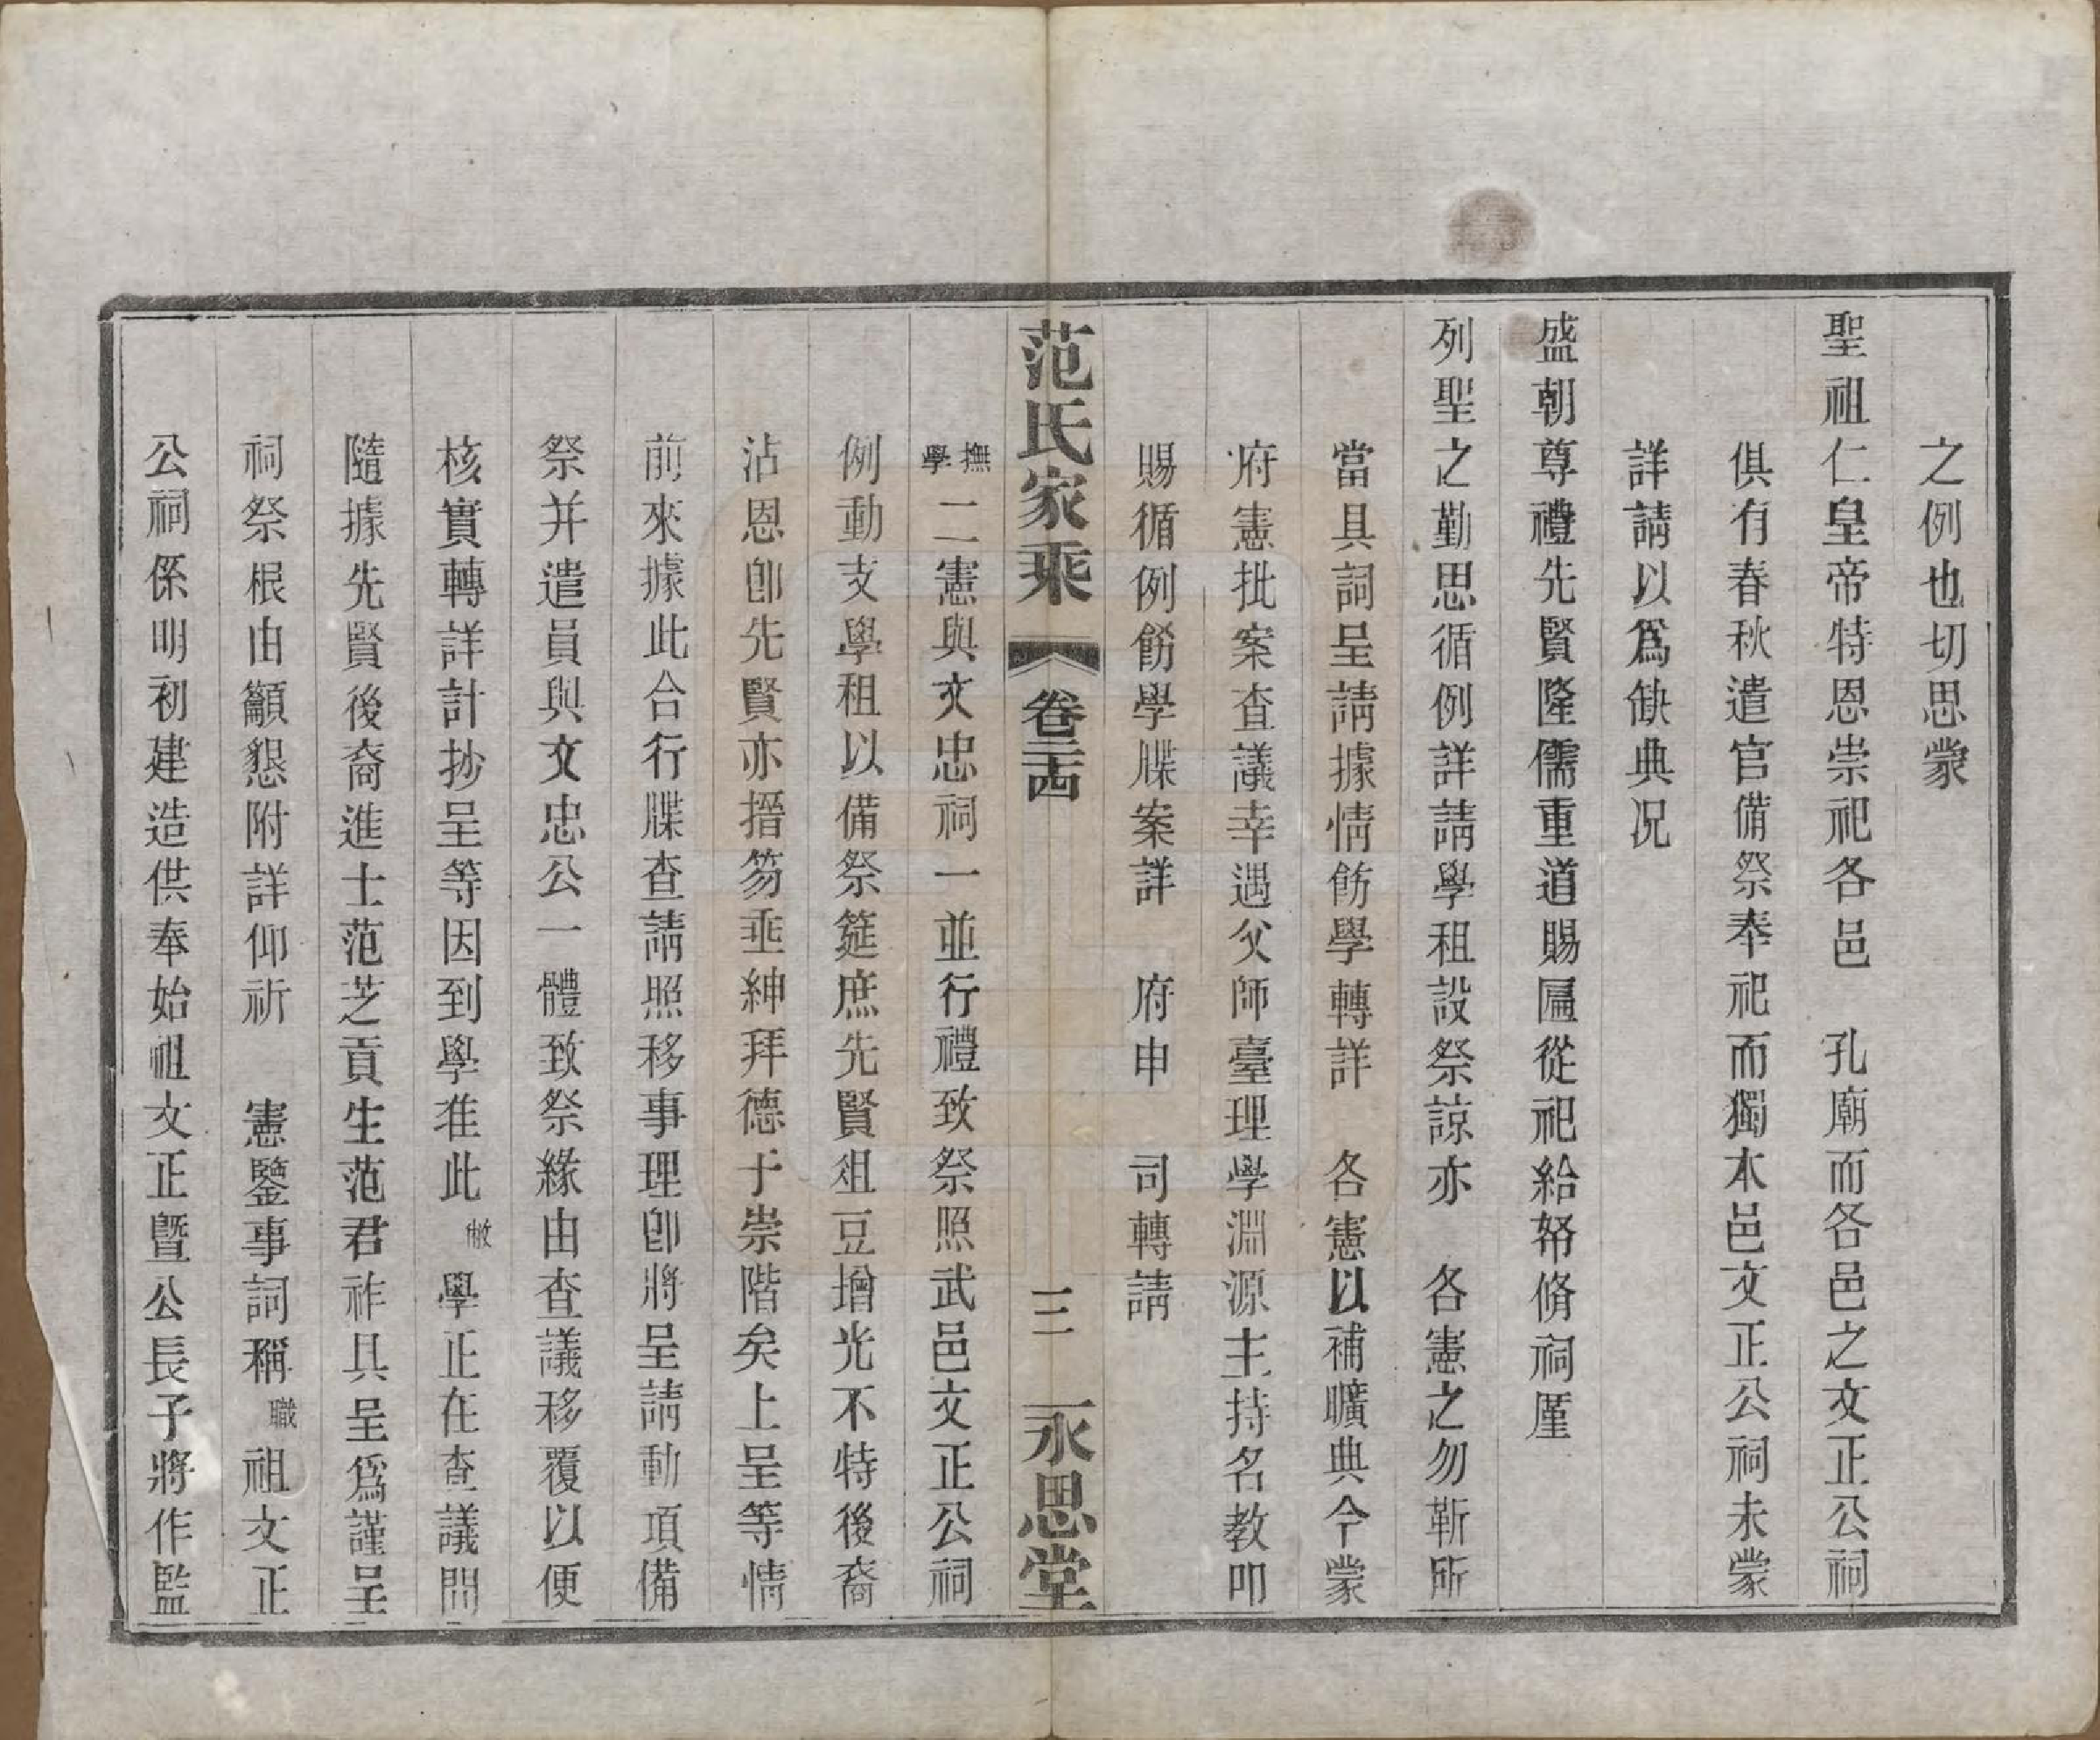 之例也切思蒙
聖祖仁皇帝特恩崇祀各邑　孔廟而各邑之文正公祠
俱有春秋遣官備祭奉祀而獨本邑文正公祠未蒙
詳請以爲缺典况
盛朝尊禮先賢隆儒重道賜匾從祀給帑脩祠厪
列聖之勤思循例詳請學租設祭諒亦　各憲之勿靳所
當具詞呈請據情飭學轉詳　各憲以補曠典今蒙
府憲批案查議幸遇父師臺理學淵源主持名教叩
賜循例飭學牒案詳　府申　司轉請
范氏家乘　卷二十四　三　永思堂
撫學二憲與文忠祠一並行禮致祭照武邑文正公祠
例動支學租以備祭筵庶先賢俎豆增光不特後裔
沾恩卽先賢亦搢笏垂紳拜德于崇階矣上呈等情
前來據此合行牒查請照移事理卽將呈請動項備
祭并遣員與文忠公一體致祭緣由查議移覆以便
核實轉詳計抄呈等因到學准此敝學正在查議間
隨據先賢後裔進士范芝貢生范君祚具呈爲謹呈
祠祭根由籲懇附詳仰祈　憲鑒事詞稱職祖文正
公祠係明初建造供奉始祖文正暨公長子將作監